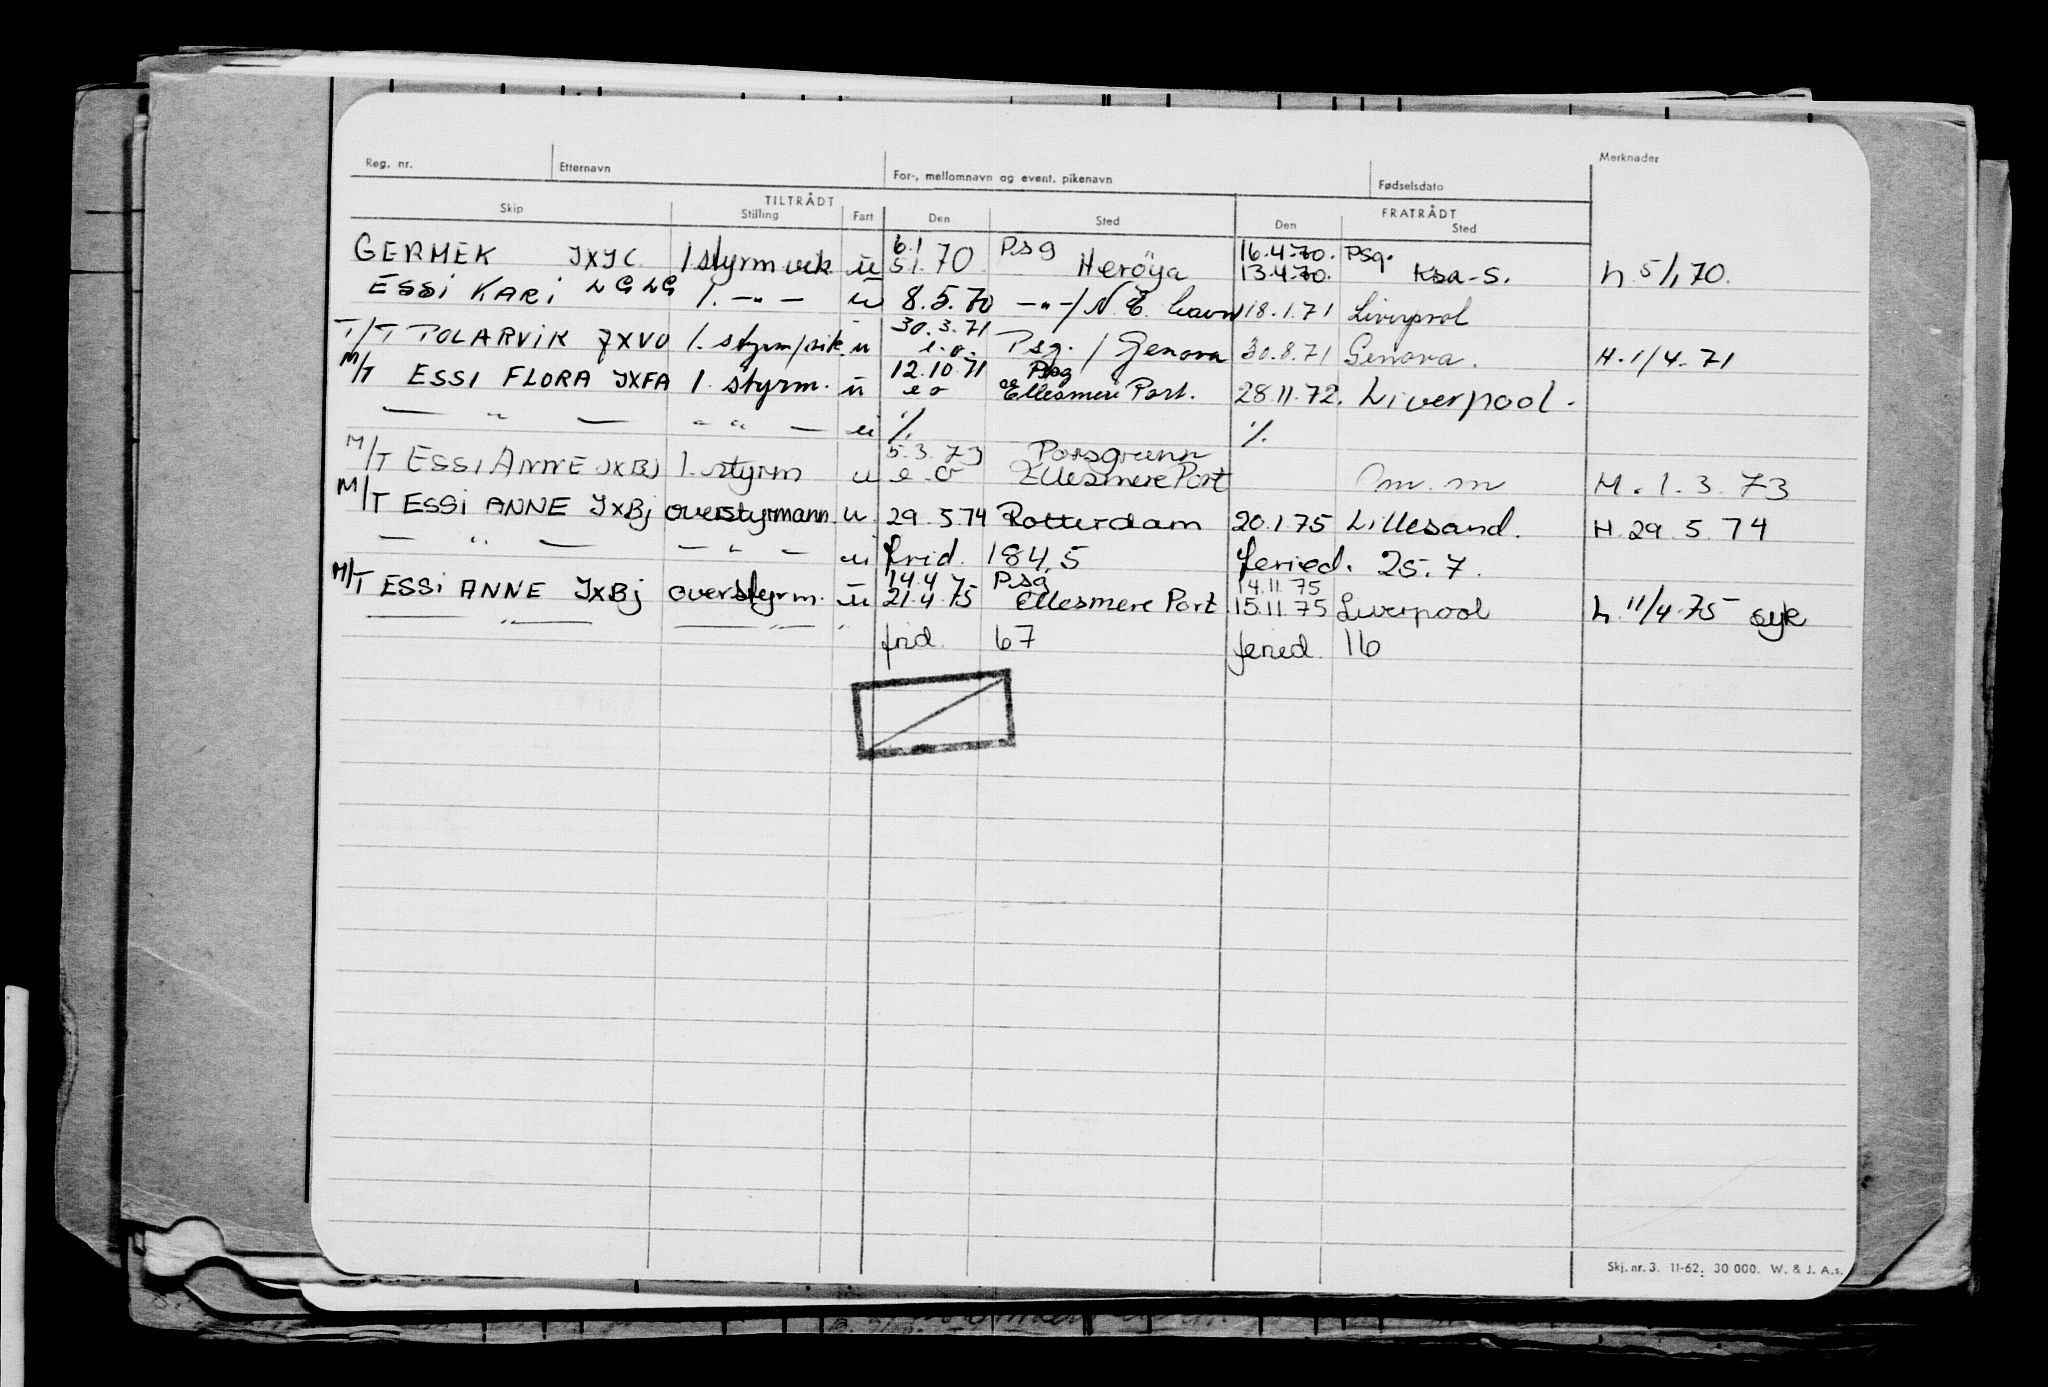 Reg. nr. Etternavn For-, mellomnavn og event. pikenavn Fødselsdato Merknader
TILTRÅDT FRATRÅDT
Skip Stilling Fart Den Sted Den Sted
6.1 Psg 16.4.70. Psg.
GERMEK JXJC 1 styrm vik. u 5.1.70 Herøya 13.4.70. Ksa-S. h. 5/1 70.
ESSI KARI LGLG 1. -"- u 8.5.70 -"-/ N.E. havn 18.1.71 Liverpool
30.3.71
T/T POLARVIK JXVO 1. styrm/vik u e.o. Psg. / Genova 30.8.71 Genova. H. 1/4.71
12.10.71 Psg
M/T ESSI FLORA JXFA 1. styrm. u e o Ellesmere Port. 28.11.72. Liverpool.
— " — " " — u %. %.
5.3.73 Porsgrunn
M/T ESSI ANNE JXBJ 1. styrm u e.o Ellesmere Port Om. m M. 1.3.73
M/T ESSI ANNE JXBj overstyrmann u. 29.5.74 Rotterdam 20.1.75 Lillesand. H. 29.5.74
— " — — " — u frid. 184,5 feried. 25.7.
14.4.75 Psg 14.11.75
M/T ESSI ANNE JXBj overstyrm. u 21.4.75 Ellesmere Port 15.11.75 Liverpool h. 11/4.75 syk
— " — — " — " frid. 67 feried. 16
Skj. nr. 3. 11-62. 30 000. W. & J. A.s.